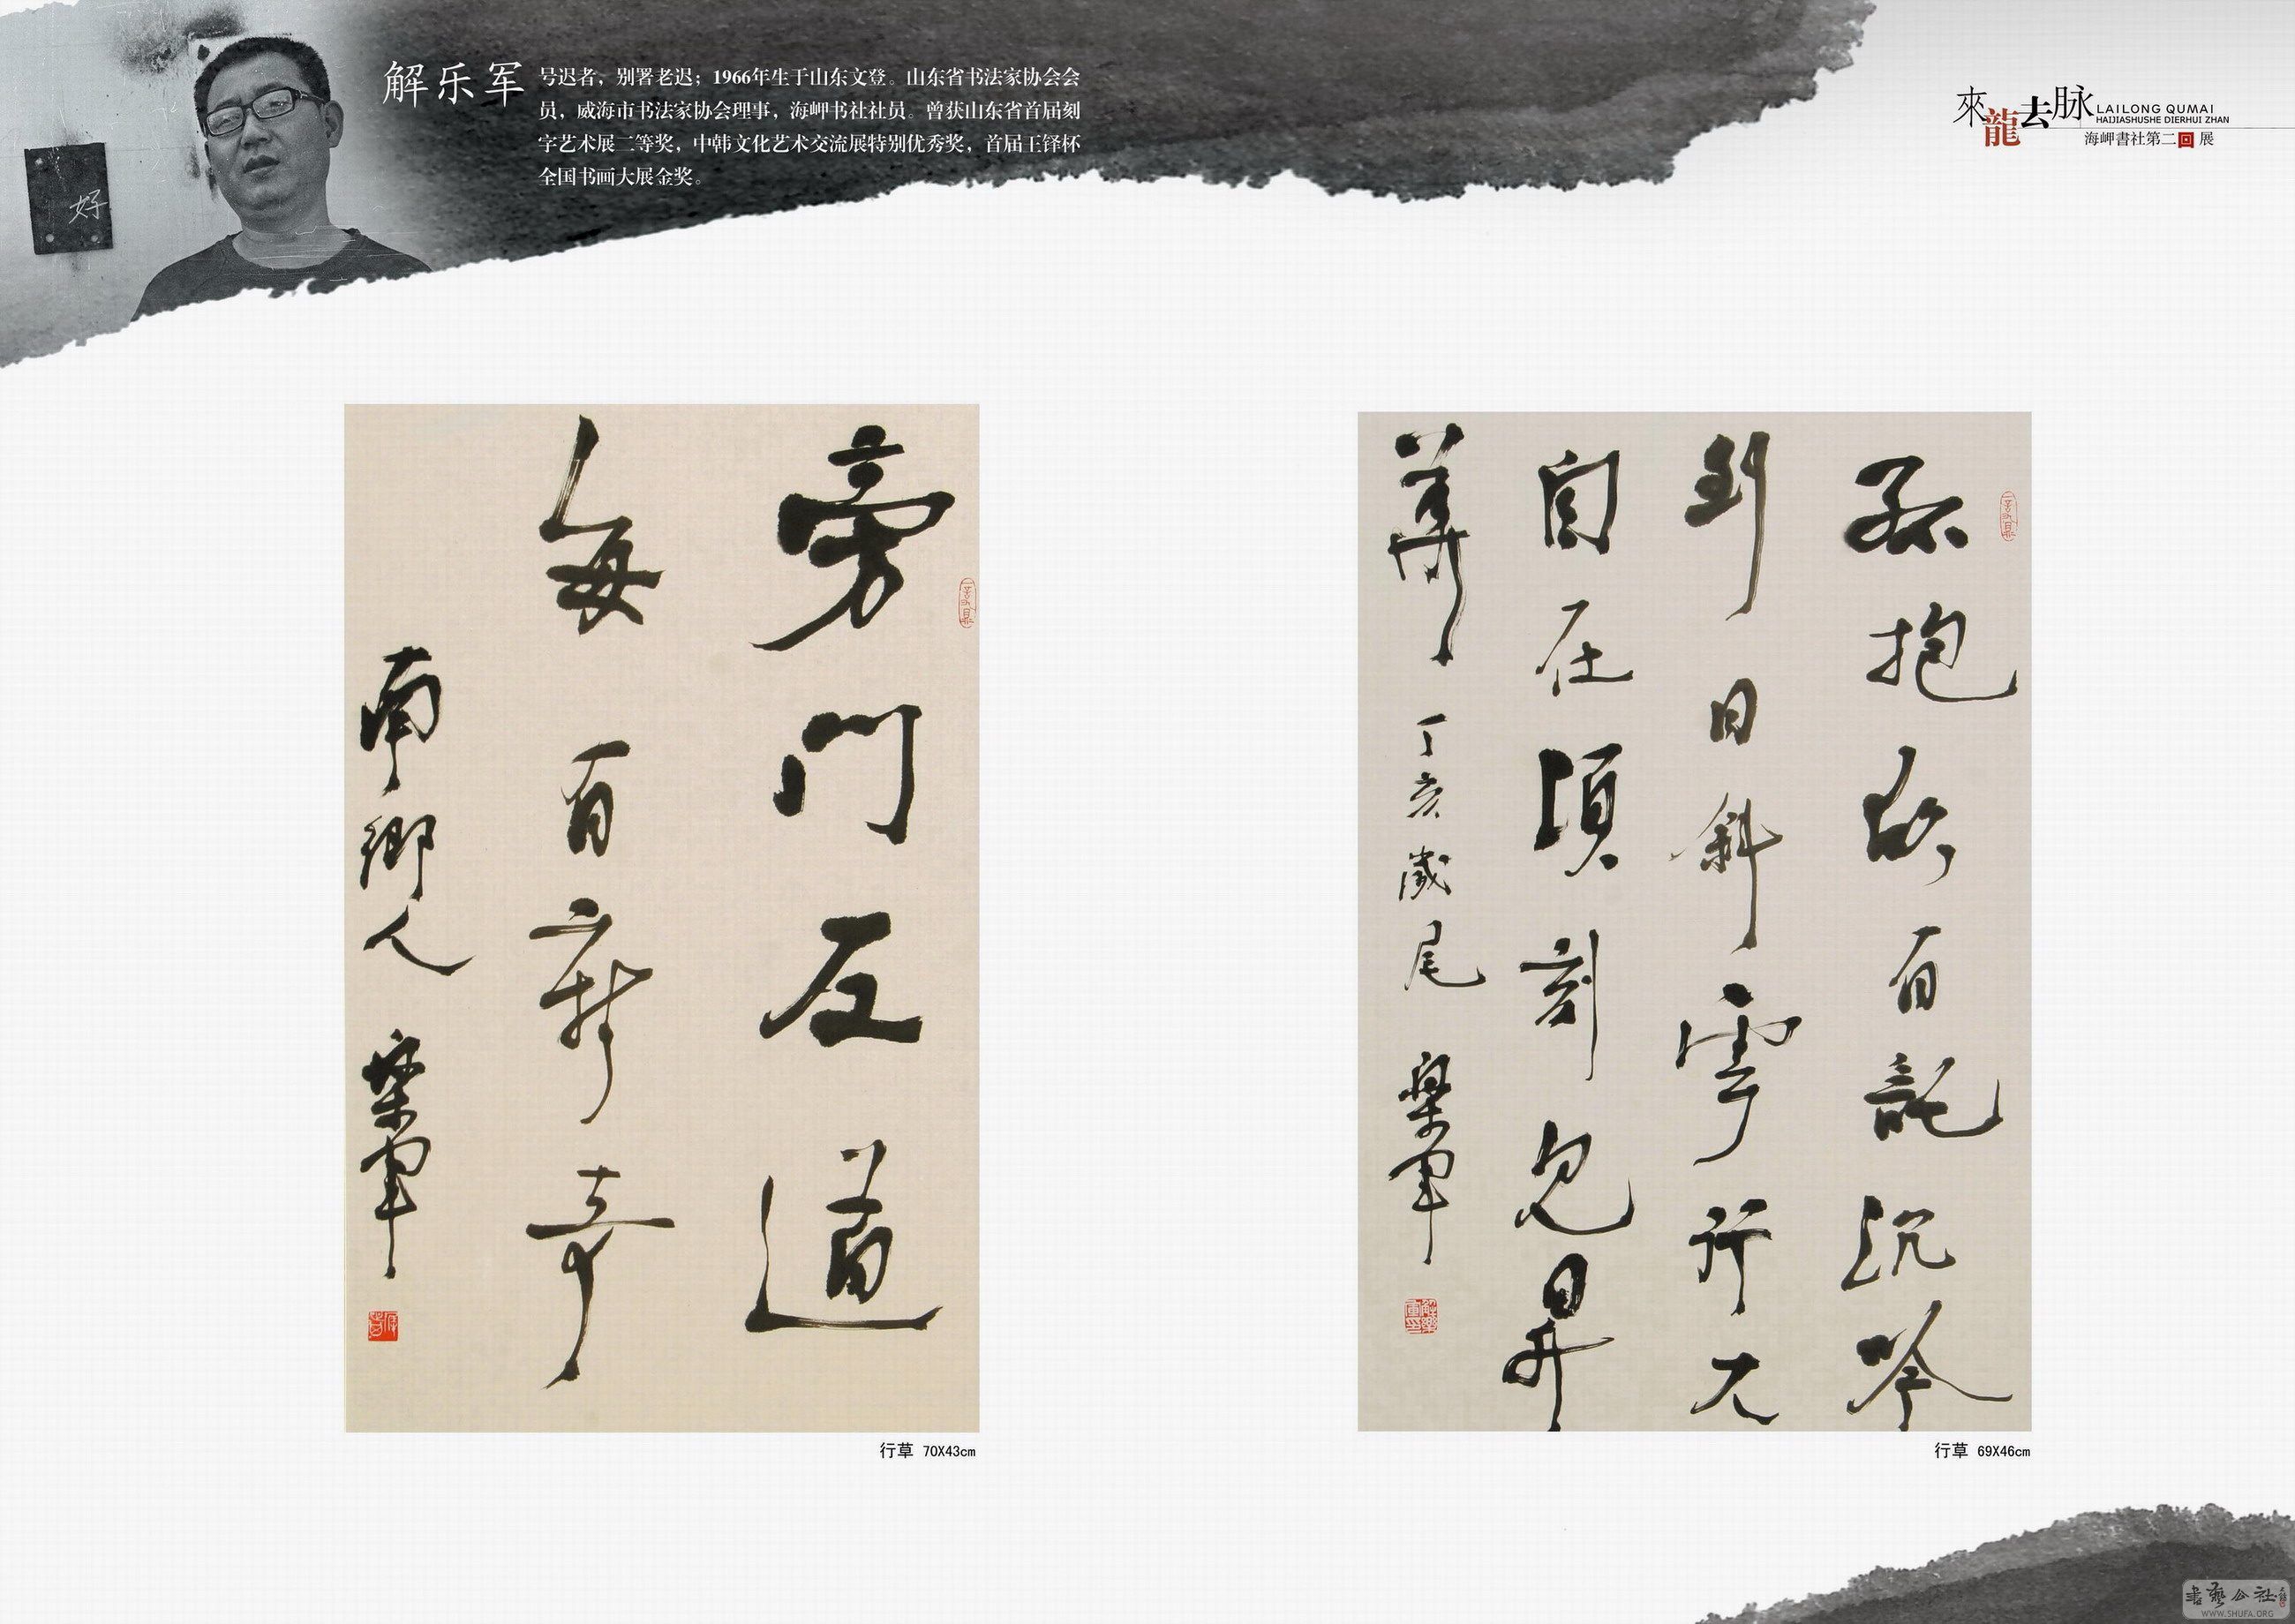 解乐军
号迟者，别署老迟；1966年生于山东文登。山东省书法家协会会
员，威海市书法家协会理事，海岬书社社员。曾获山东省首届刻
字艺术展二等奖，中韩文化艺术交流展特别优秀奖，首届王铎杯
全国书画大展金奖。
好
來龍去脉
LAILONG QUMAI
HAIJIASHUSHE DIERHUI ZHAN
海岬書社第二回展
旁門左道
每有新奇
南鄉人 樂軍
行草 70X43cm
孤抱有託沉吟
到日斜雲行无
自在頃刻昇
華 丁亥歲尾 樂軍
行草 69X46cm
書藝公社
WWW.SHUFA.ORG